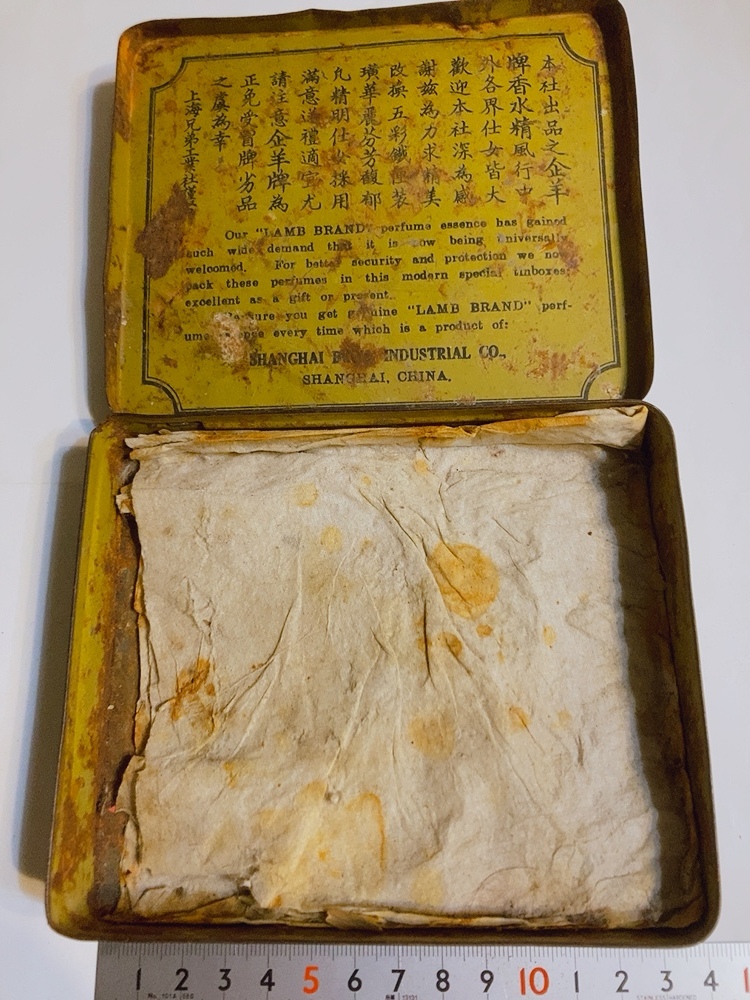 本社出品之企羊
牌香水精風行中
外各界仕女皆大
歡迎本社深為感
謝茲為力求精美
改換五彩鐵匣裝
璜華麗芬芳馥郁
凡精明仕女採用
滿意送禮適宜尤
請注意企羊牌為
正免受冒牌劣品
之虞為幸
上海兄弟工業社謹
Our "LAMB BRAND" perfume essence has gained
such wide demand that it is now being universally
welcomed. For better security and protection we now
pack these perfumes in this modern special tinboxes,
excellent as a gift or present.
Be sure you get genuine "LAMB BRAND" perf-
ume every time which is a product of:
SHANGHAI BROS. INDUSTRIAL CO.,
SHANGHAI, CHINA.
1 2 3 4 5 6 7 8 9 10 1 2 3 4 1